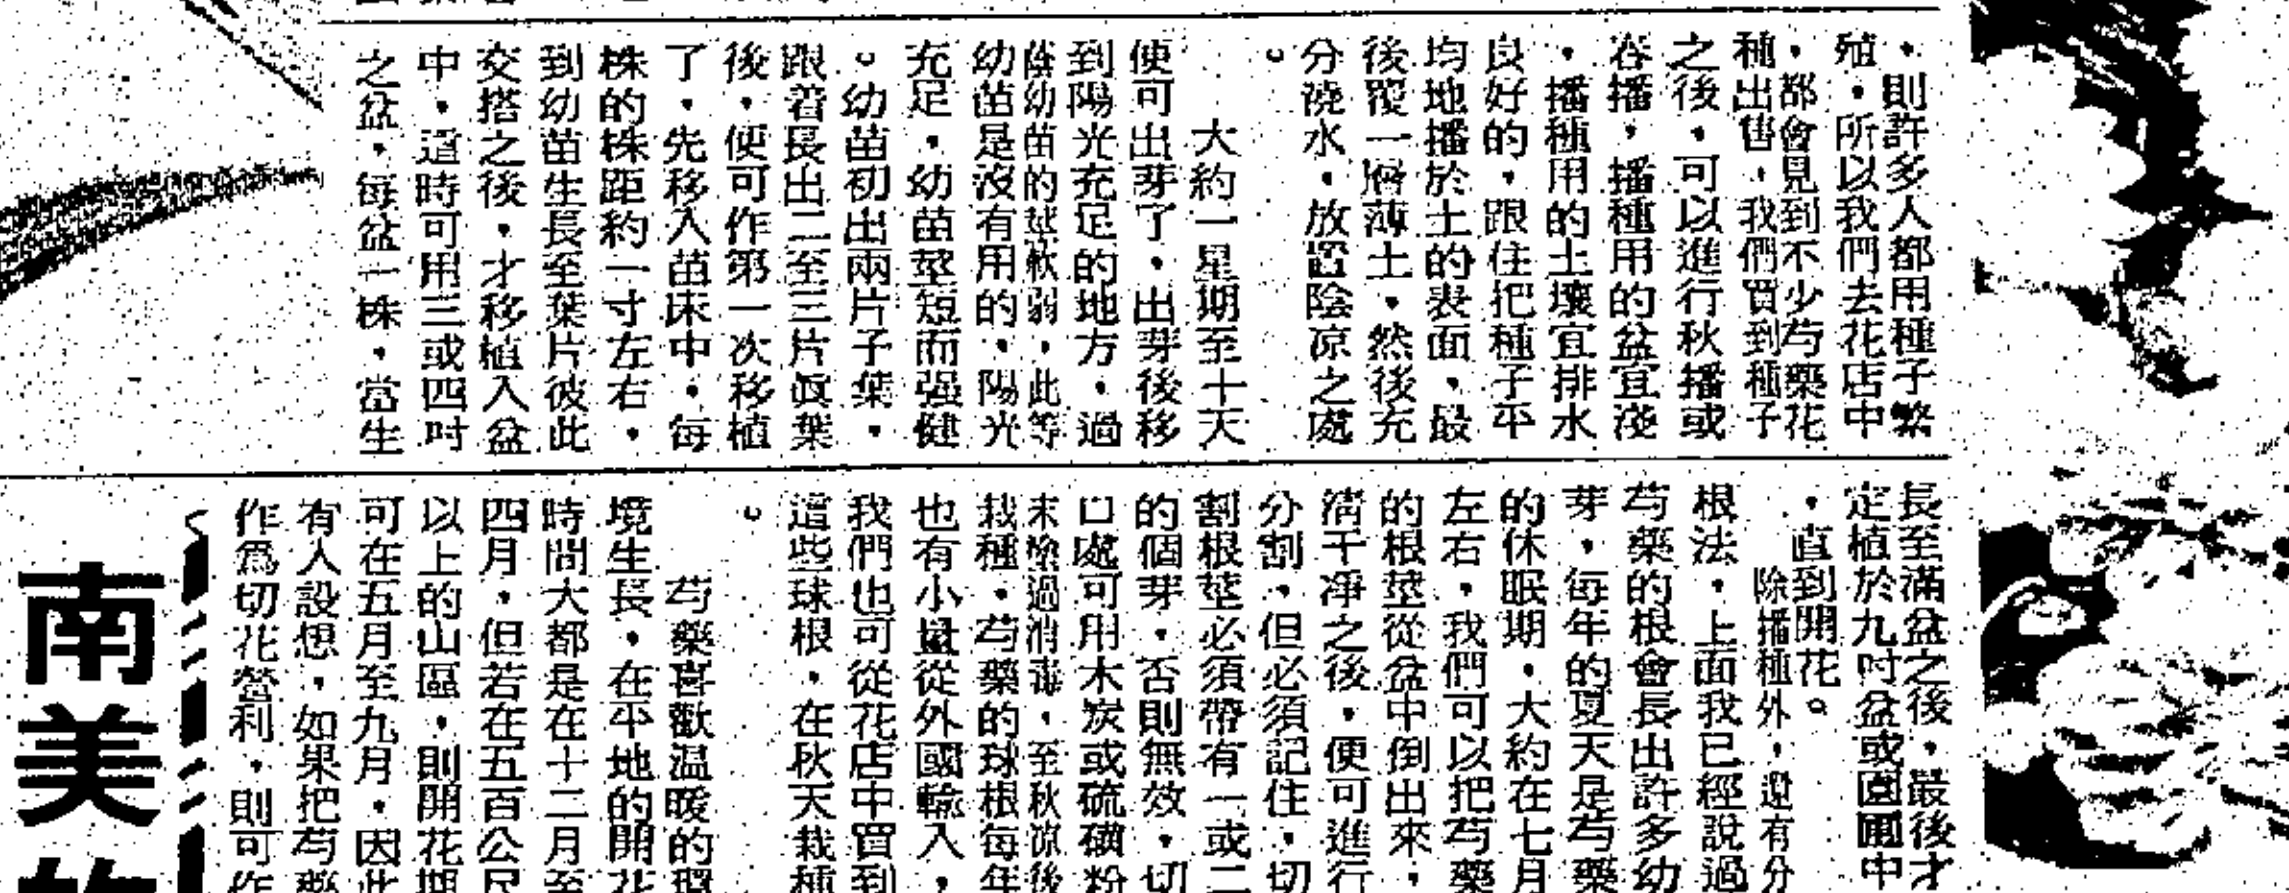 ，則許多人都用種子繁
殖，所以我們去花店中
，都會見到不少芍藥花
種出售，我們買到種子
之後，可以進行秋播或
春播，播種用的盆宜淺
，播種用的土壤宜排水
良好的，跟住把種子平
均地播於土的表面，最
後覆一層薄土，然後充
分澆水，放置陰凉之處
。
大約一星期至十天
便可出芽了，出芽後移
到陽光充足的地方，過
蔭幼苗的莖軟弱，此等
幼苗是沒有用的，陽光
充足，幼苗莖短而强健
。幼苗初出兩片子葉，
跟着長出二至三片眞葉
後，便可作第一次移植
了，先移入苗床中，每
株的株距約一寸左右，
到幼苗生長至葉片彼此
交搭之後，才移植入盆
中，這時可用三或四吋
之盆，每盆一株，當生
長至滿盆之後，最後才
定植於九吋盆或園圃中
，直到開花。
除播種外，還有分
根法，上面我已經說過
芍藥的根會長出許多幼
芽，每年的夏天是芍藥
的休眠期，大約在七月
左右，我們可以把芍藥
的根莖從盆中倒出來，
清干凈之後，便可進行
分割，但必須記住，切
割根莖必須帶有一或二
的個芽，否則無效，切
口處可用木炭或硫磺粉
末塗過消毒，至秋凉後
栽種，芍藥的球根每年
也有小量從外國輸入，
我們也可從花店中買到
這些球根，在秋天栽種
。
芍藥喜歡温暖的環
境生長，在平地的開花
時間大都是在十二月至
四月，但若在五百公尺
以上的山區，則開花期
可在五月至九月，因此
有人設想，如果把芍藥
作爲切花營利，則可作
南美的